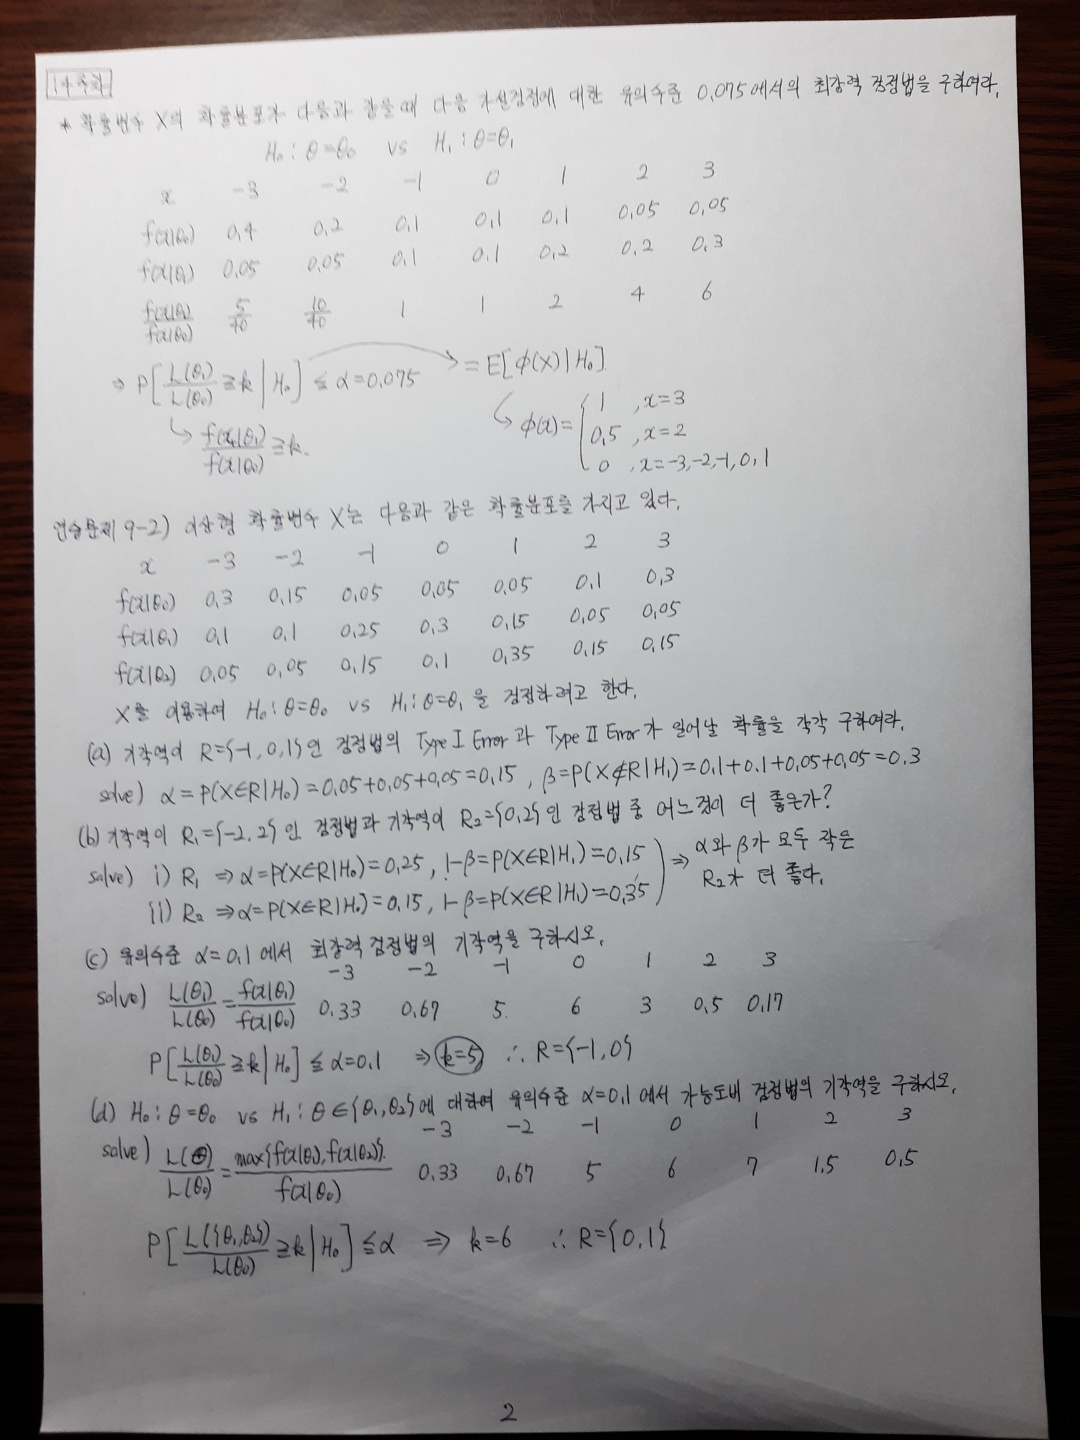 14주차
* 확률변수 X의 확률분포가 다음과 같을 때 다음 가설검정에 대한 유의수준 0.075에서의 최강력 검정법을 구하여라.
H₀ : θ=θ₀ vs H₁ : θ=θ₁
x -3 -2 -1 0 1 2 3
f(x|θ₀) 0.4 0.2 0.1 0.1 0.1 0.05 0.05
f(x|θ₁) 0.05 0.05 0.1 0.1 0.2 0.2 0.3
f(x|θ₁)/f(x|θ₀) 5/40 10/40 1 1 2 4 6
⇒ P[L(θ₁)/L(θ₀) ≥ k | H₀] ≤ α = 0.075 = E[φ(X)|H₀]
↳ f(x|θ₁)/f(x|θ₀) ≥ k.
↳ φ(x) = { 1 , x=3
0.5 , x=2
0 , x=-3,-2,-1,0,1
연습문제 9-2) 이산형 확률변수 X는 다음과 같은 확률분포를 가지고 있다.
x -3 -2 -1 0 1 2 3
f(x|θ₀) 0.3 0.15 0.05 0.05 0.05 0.1 0.3
f(x|θ₁) 0.1 0.1 0.25 0.3 0.15 0.05 0.05
f(x|θ₂) 0.05 0.05 0.15 0.1 0.35 0.15 0.15
X를 이용하여 H₀ : θ=θ₀ vs H₁ : θ=θ₁을 검정하려고 한다.
(a) 기각역이 R={-1,0,1}인 검정법의 Type I Error과 Type II Error가 일어날 확률을 각각 구하여라.
solve) α = P(X∈R|H₀) = 0.05+0.05+0.05 = 0.15 , β = P(X∉R|H₁) = 0.1+0.1+0.05+0.05 = 0.3
(b) 기각역이 R₁={-2,2}인 검정법과 기각역이 R₂={0,2}인 검정법 중 어느것이 더 좋은가?
solve) i) R₁ ⇒ α=P(X∈R|H₀)=0.25 , 1-β=P(X∈R|H₁)=0.15
ii) R₂ ⇒ α=P(X∈R|H₀)=0.15, 1-β=P(X∈R|H₁)=0.35
⇒ α와 β가 모두 작은
R₂가 더 좋다.
(c) 유의수준 α=0.1에서 최강력 검정법의 기각역을 구하시오.
-3 -2 -1 0 1 2 3
solve) L(θ₁)/L(θ₀) = f(x|θ₁)/f(x|θ₀) 0.33 0.67 5 6 3 0.5 0.17
P[L(θ₁)/L(θ₀) ≥ k | H₀] ≤ α=0.1 ⇒ k=5 ∴ R={-1,0}
(d) H₀ : θ=θ₀ vs H₁ : θ∈{θ₁,θ₂}에 대하여 유의수준 α=0.1에서 가능도비 검정법의 기각역을 구하시오.
-3 -2 -1 0 1 2 3
solve) L(θ)/L(θ₀) = max{f(x|θ₁), f(x|θ₂)}/f(x|θ₀) 0.33 0.67 5 6 7 1.5 0.5
P[L({θ₁,θ₂})/L(θ₀) ≥ k | H₀] ≤ α ⇒ k=6 ∴ R={0,1}
2